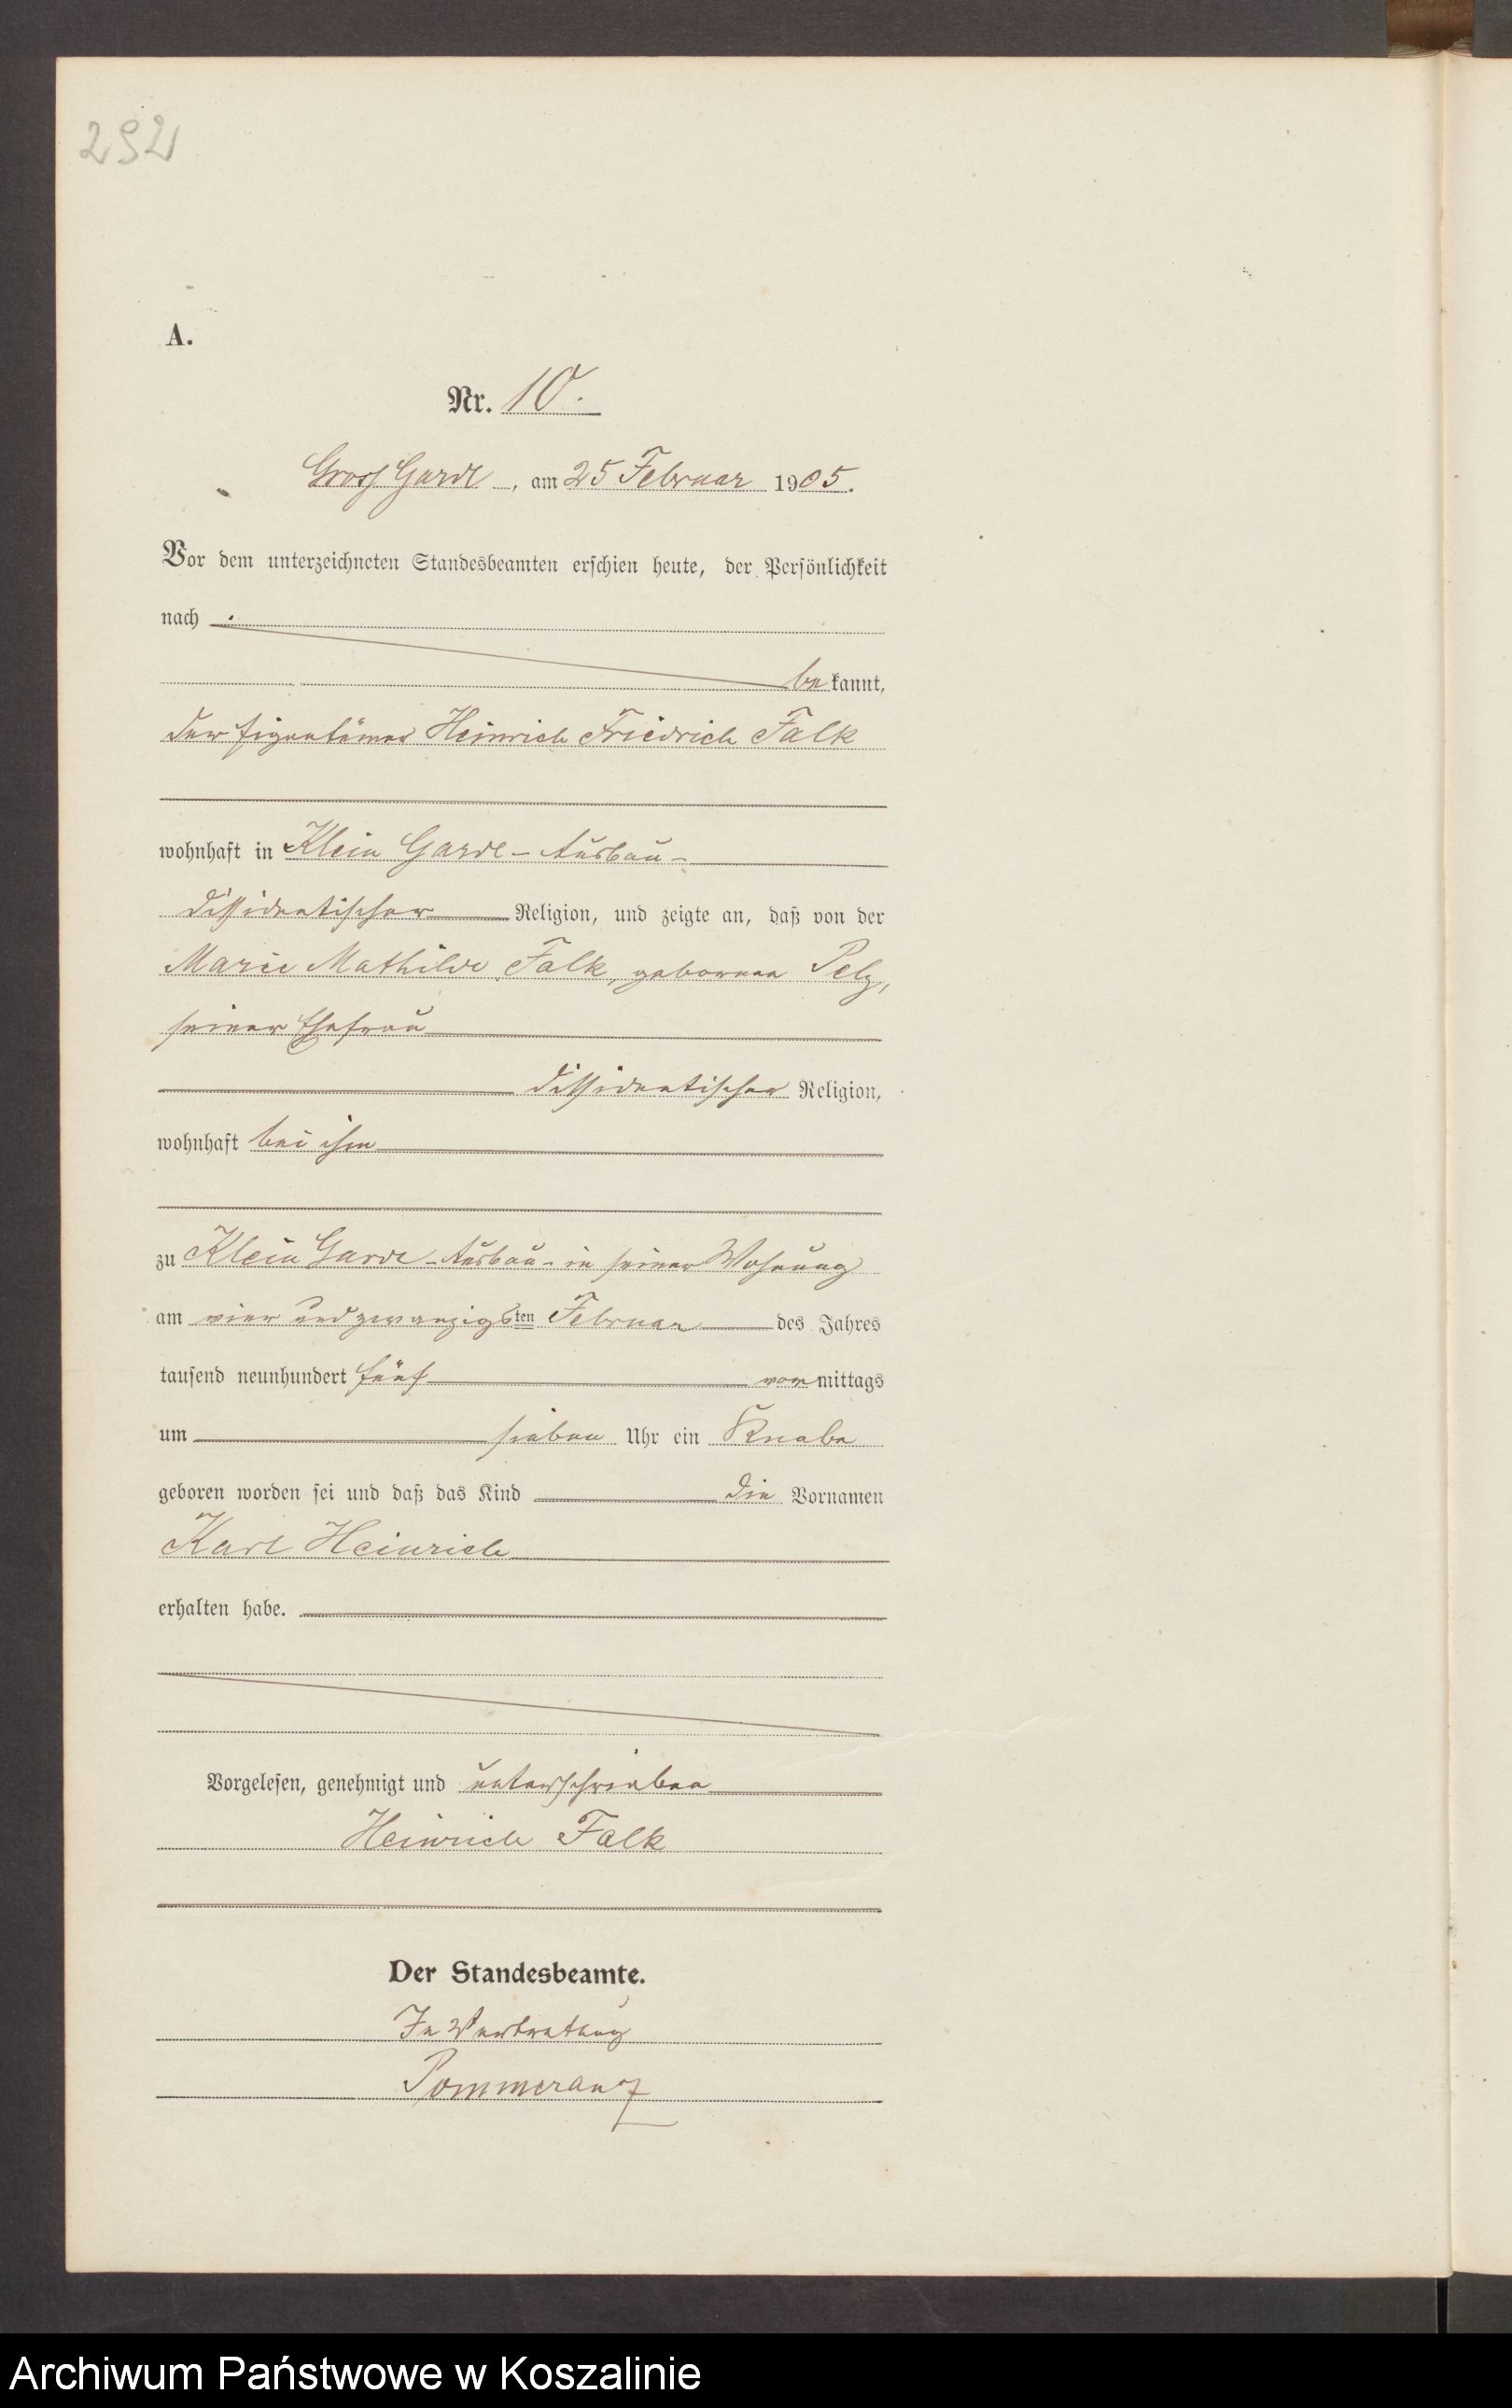 292
A.
Nr. 10.
Gross Garde, am 25 Februar 1905.
Vor dem unterzeichneten Standesbeamten erschien heute, der Persönlichkeit
nach
bekannt,
der Eigentümer Heinrich Friedrich Falk
wohnhaft in Klein Garde - Ausbau -
dissidentischer Religion, und zeigte an, daß von der
Marie Mathilde Falk, geborenen Pelz,
seiner Ehefrau
dissidentischer Religion,
wohnhaft bei ihm
zu Klein Garde - Ausbau - in seiner Wohnung
am vier und zwanzigsten Februar des Jahres
tausend neunhundert fünf vormittags
um sieben Uhr ein Knabe
geboren worden sei und daß das Kind die Vornamen
Karl Heinrich
erhalten habe.
Vorgelesen, genehmigt und unterschrieben
Heinrich Falk
Der Standesbeamte.
In Vertretung
Pommeranz
Archiwum Państwowe w Koszalinie